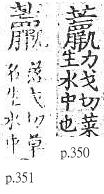 力戈切葉
生水中也
p.350
落戈切草
名生水中
p.351